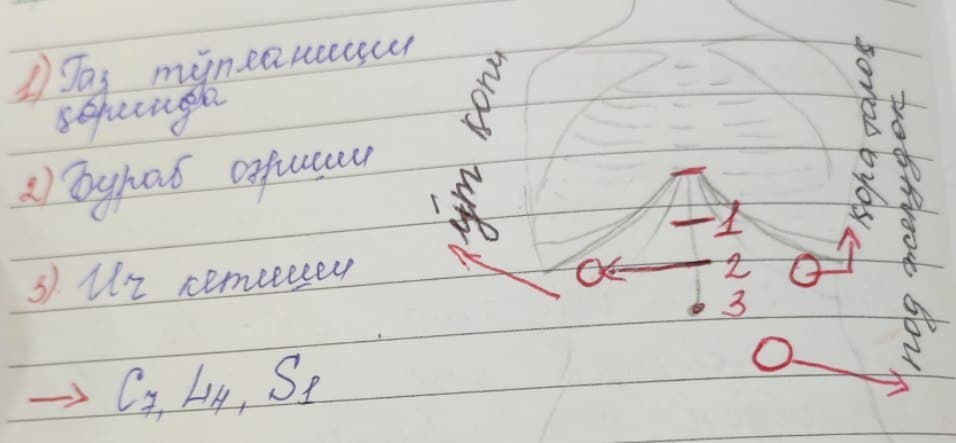 1) Газ тўпланиши
қоринда
2) Бураб оғриши
3) Ич кетиши
→ C7, L4, S1
ўт қопи
1
2
3
қора талоқ
под желудок